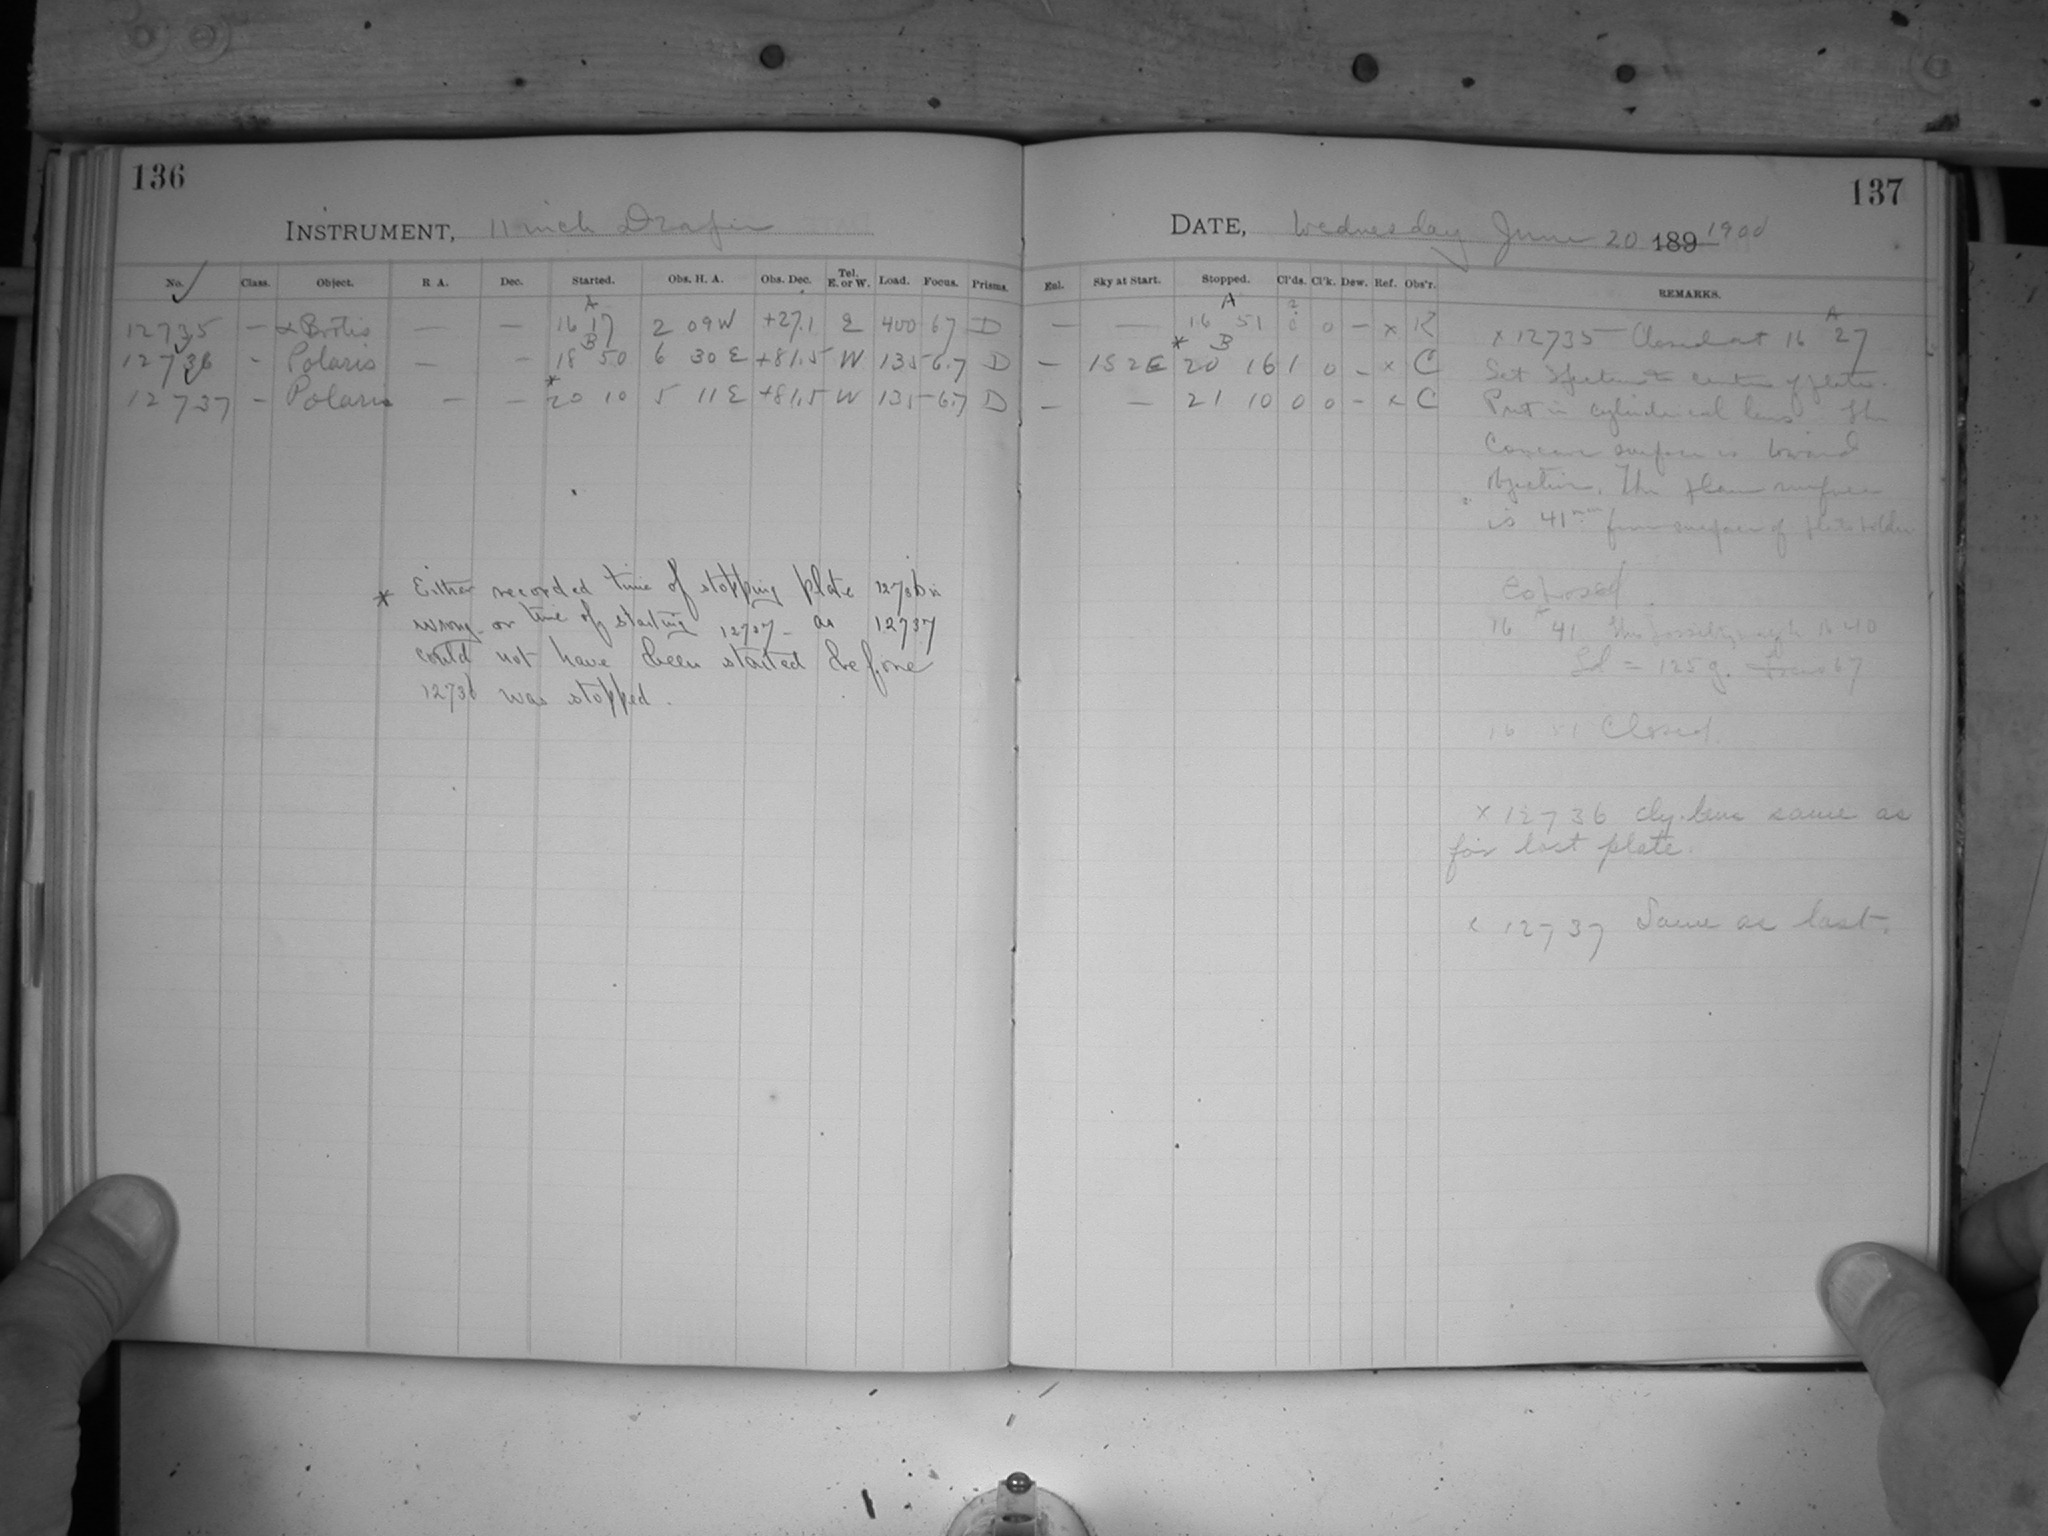 136
INSTRUMENT, 11 inch Draper
No. Class. Object. R A. Dec. Started. Obs. H. A. Obs. Dec. Tel. E. or W. Load. Focus. Prisms.
A
12735 — α Bootis — — 16 17 2 09 W +27.1 E 400 67 D
B
12736 - Polaris — — 18 50 6 30 E +81.5 W 135 6.7 D
*
12737 - Polaris — — 20 10 5 11 E +81.5 W 135 6.7 D
* Either recorded time of stopping plate 12736 is
wrong - or time of starting 12737 - as 12737
could not have been started before
12736 was stopped.
137
DATE, Wednesday June 20 189 1900
Enl. Sky at Start. Stopped. Cl'ds. Cl'k. Dew. Ref. Obs'r. REMARKS.
A ?
— — 16 51 0 — x R
* B
— 1S 2E 20 16 1 0 – x C
— — 21 10 0 0 – x C
A
x 12735 — Closed at 16 27
Set Spectrum to centre of plate.
Put in cylindrical lens. The
Concave surface is toward
objective. The plane surface
is 41 mm from surface of plate holder
Exposed
16 41
Ld = 125 g. 67
16 51 Closed.
x 12736 Cly. lens same as
for last plate.
x 12737 Same as last.